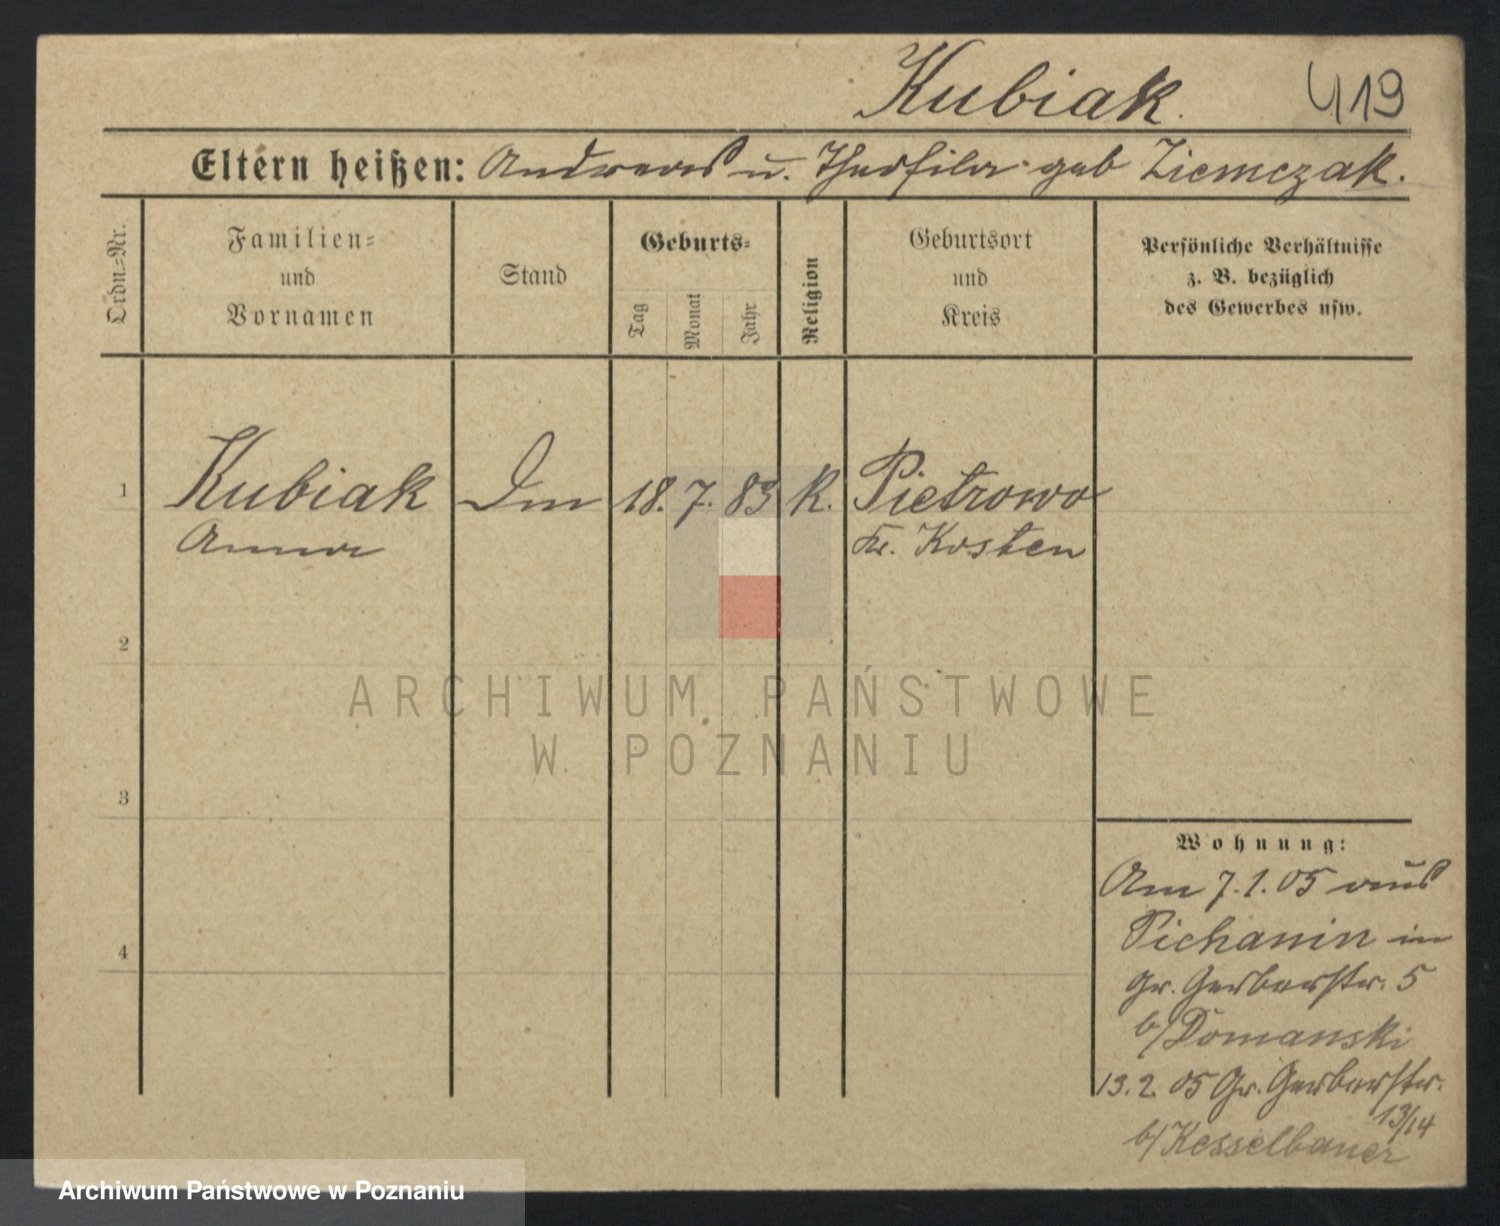 Kubiak. 419
Eltern heißen: Andreas u. Theofila geb Ziemczak.
Ordn.-Nr.
Familien-
und
Vornamen
Stand
Geburts-
Tag
Monat
Jahr
Religion
Geburtsort
und
Kreis
Persönliche Verhältnisse
z. B. bezüglich
des Gewerbes usw.
1 Kubiak 18. 7. 83 K. Pietrowo
Anna Kr. Kosten
2
ARCHIWUM PAŃSTWOWE
W POZNANIU
3
4
Wohnung:
Am 7.1.05 aus
Pichanin in
Gr. Gerberstr. 5
b/Domanski
13.2.05 Gr. Gerberstr.
13/14
b/Kesselbauer
Archiwum Państwowe w Poznaniu